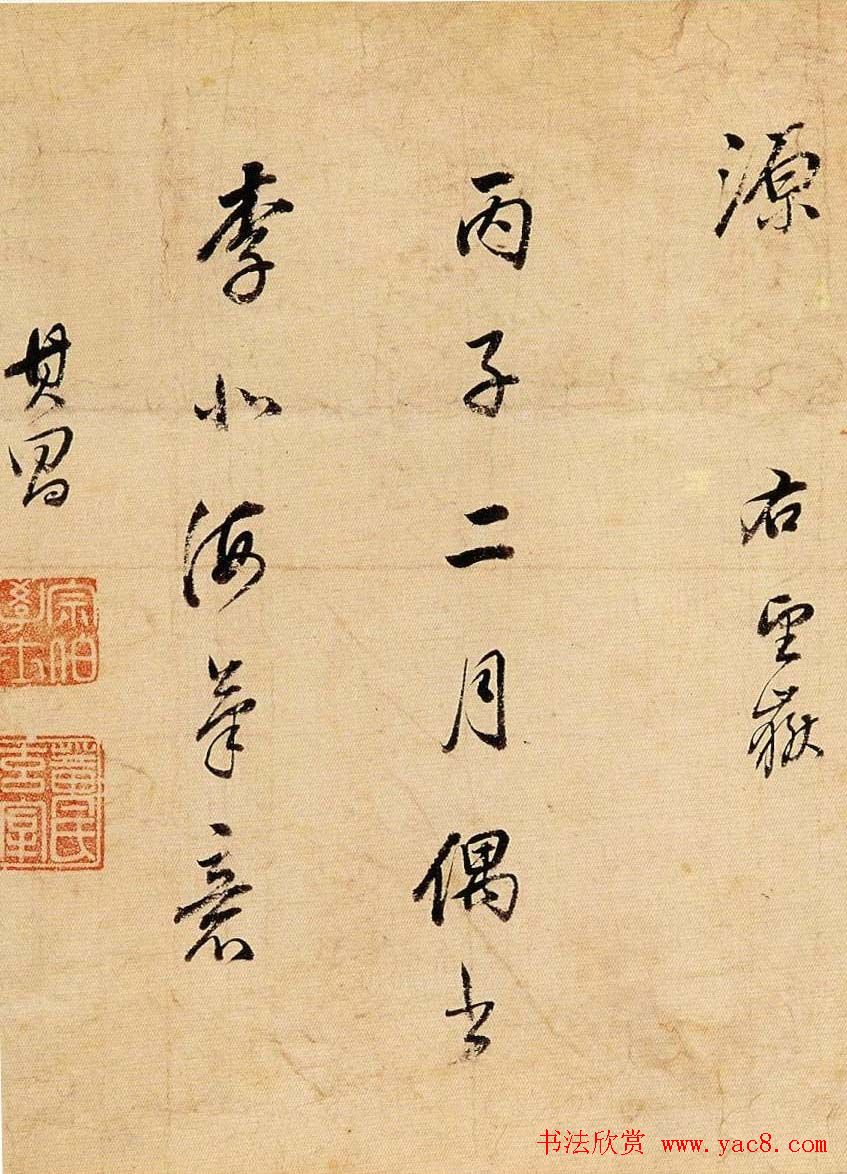 源 右望嶽
丙子二月偶書
李北海筆意
其昌
宗伯學士
董氏玄宰
书法欣赏 www.yac8.com